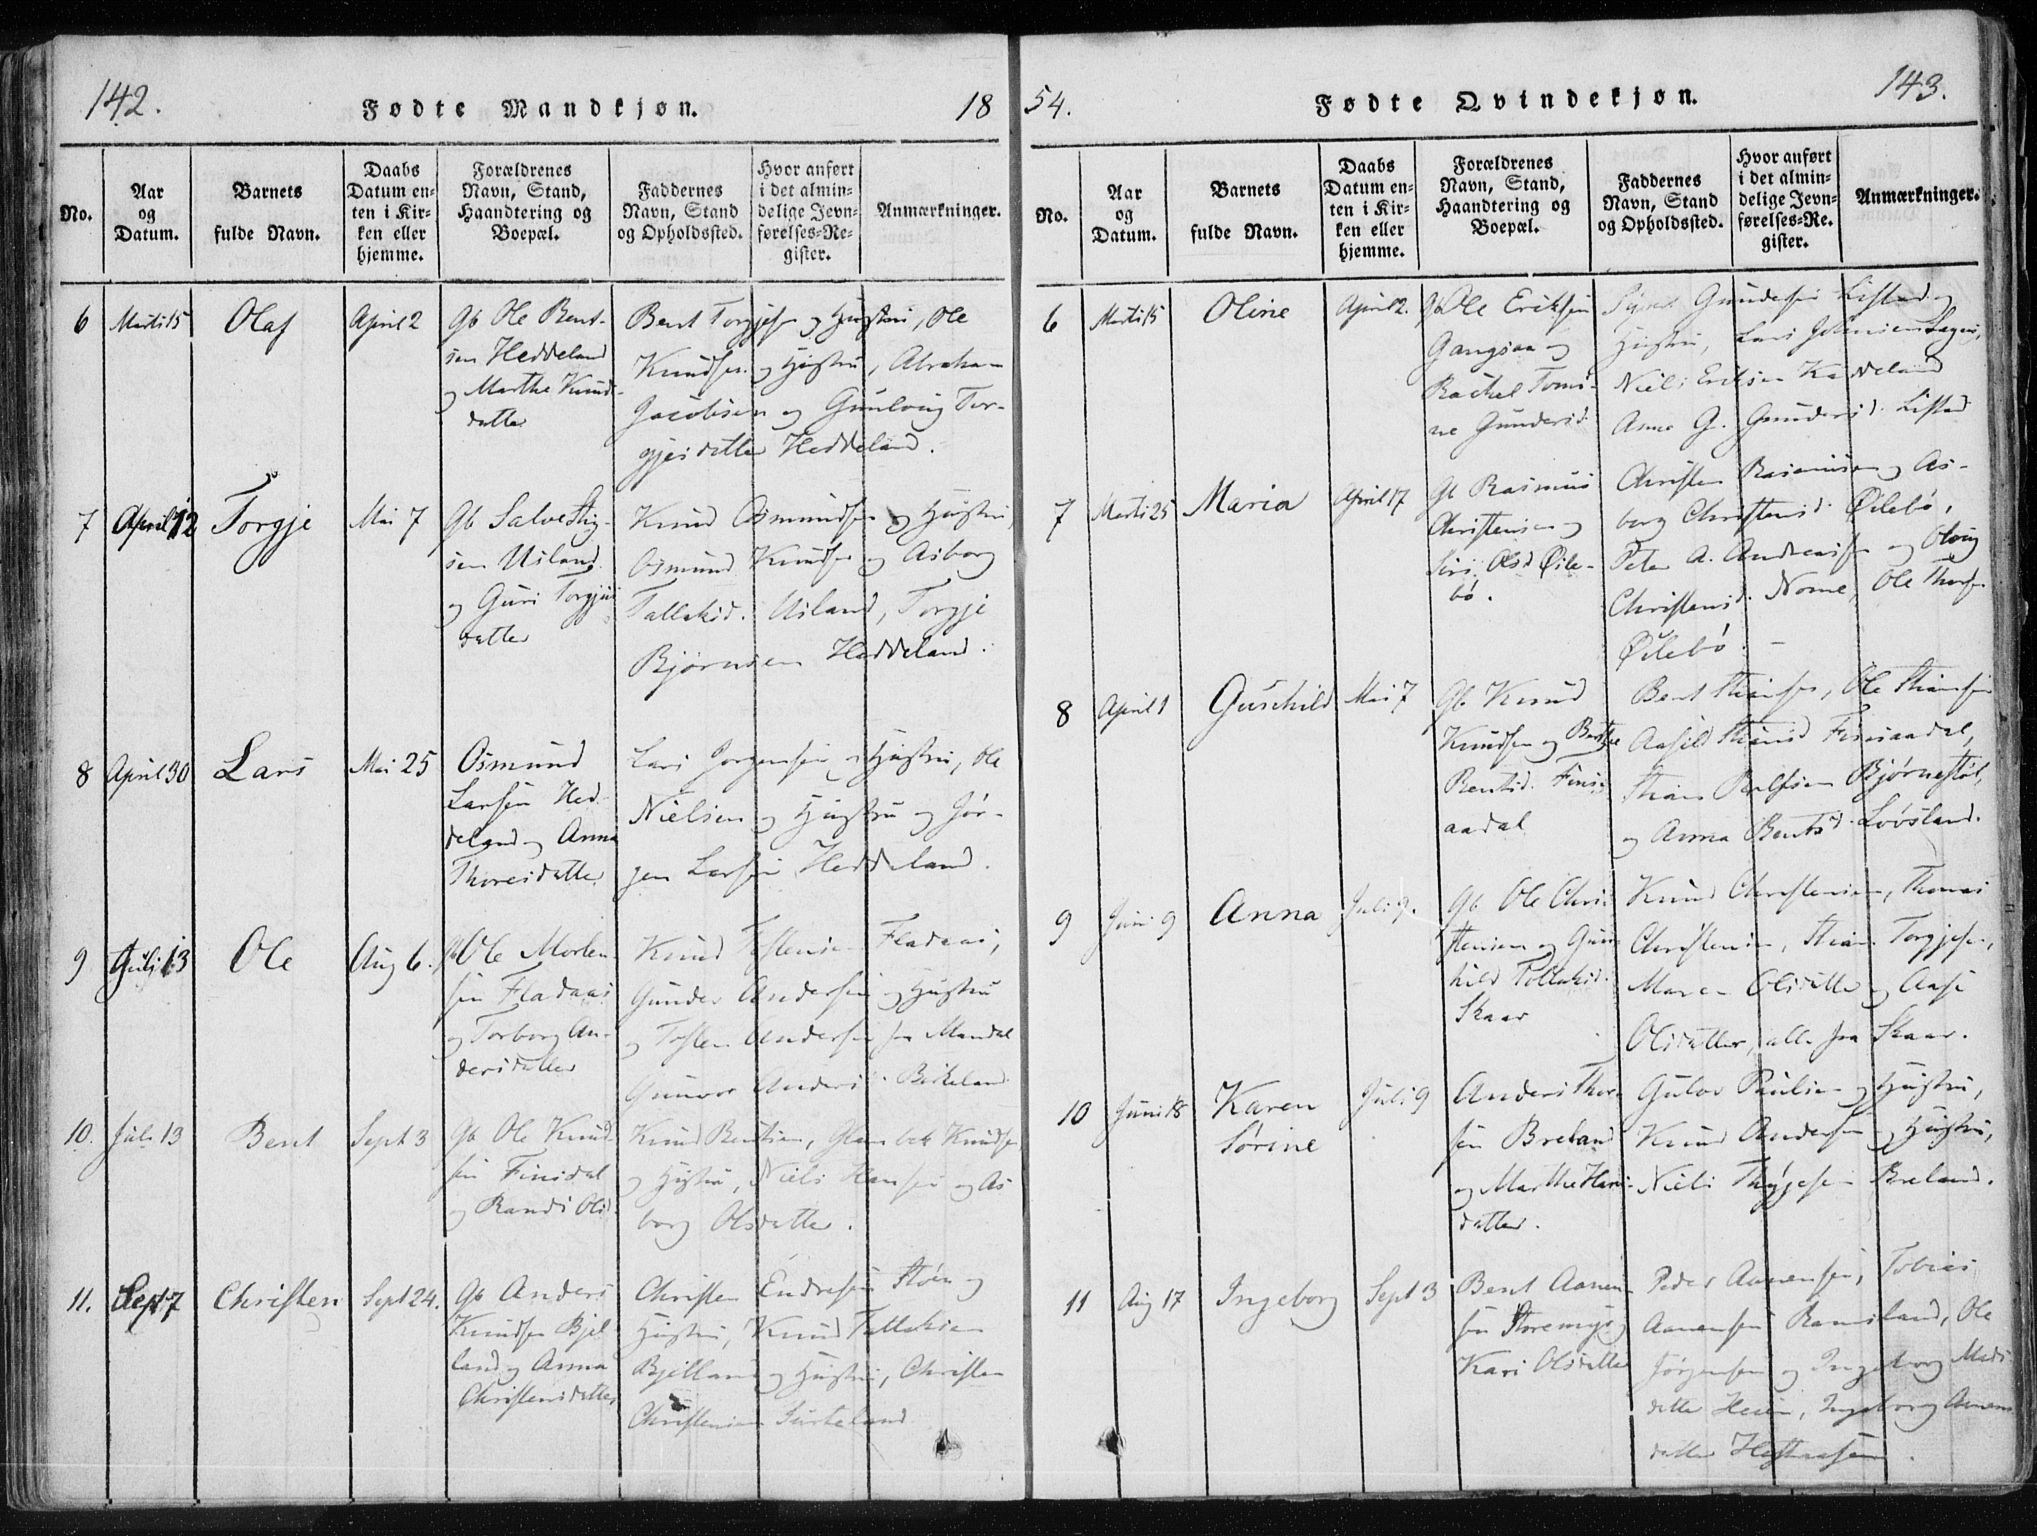 142.
Fødte Mandkjøn.
18
No.
Aar og Datum.
Barnets fulde Navn.
Daabs Datum enten i Kirken eller hjemme.
Forældrenes Navn, Stand, Haandtering og Boepæl.
Faddernes Navn, Stand og Opholdssted.
Hvor anført i det almindelige Jevnførelses-Register.
Anmærkninger.
6 Marti 15 Olaf April 2
Gb Ole Bent-
sen Heddeland
og Marthe Knud-
datter
Bent Torgjesen og Hustru, Ole
Knudsen og Hustru, Abraham
Jacobsen og Gunlaug Tor-
gjesdatter Heddeland.
7 April 12 Torgje Mai 7
Gb Salve Stig-
sen Usland
og Guri Torgjus
datter
Knud Osmundsen og Hustru,
Osmund Knudsen og Asborg
Tallaksd. Usland, Torgje
Bjørnsen Heddeland.
8 April 30 Lars Mai 25
Osmund
Larsen Hed-
deland og Anna
Thoresdatter
Lars Jørgensen og Hustru, Ole
Nielsen og Hustru og Jør-
gen Larsen Heddeland.
9 Juli 13 Ole Aug 6.
Gb Ole Morten-
sen Fladaas
og Torborg An-
dersdatter
Knud Tostensen Fladaas,
Gunder Andersen og Hustru
og Tosten Andersen fra Mandal
Gunvor Andersd. Birkeland
10. Juli 13 Bent Sept 3
Gb Ole Knud-
sen Finsdal
og Randi Olsd.
Knud Bentsen, Knudsen
og Hustru, Niels Hansen og As
borg Olsdatter.
11. Sept 7 Christen Sept 24.
Gb Anders
Knudsen Bjel
land og Anna
Christensdatter
Christen Endresen Støen og
Hustru, Knud Tallaksen
Bjelland og Hustru, Christen
Christensen
54.
Fødte Qvindekjøn.
143.
No.
Aar og Datum.
Barnets fulde Navn.
Daabs Datum enten i Kirken eller hjemme.
Forældrenes Navn, Stand, Haandtering og Boepæl.
Faddernes Navn, Stand og Opholdssted.
Hvor anført i det almindelige Jevnførelses-Register.
Anmærkninger.
6 Marti 15 Oline April 2.
Gb Ole Eriksen
Gangsaa og
Rachel Tomi-
ne Gundersd.
Gundersen Lifstad og
Hustru, Lars
Niels Eriksen Kaddeland
Anne G. Gundersd. Lifstad
7 Marti 25 Maria April 17
Gb Rasmus
Christensen og
Siri Olsd Øile-
bø.
Christen Rasmusen og As-
borg Christensd. Øilebø,
Peter A. Andreassen og Olaug
Christensd. Nome, Ole Thorsen
Øilebø. -
8 April 1 Guschild Mai 7
Gb Knud
Knudsen og Berthe
Bentsd. Fins-
aadal
Bent Stiansen, Ole Stiansen
Aasild Stiansd Finsaadal,
Stian Rolfsen Bjørnestøl,
og Anna Bentsd. Løvsland.
9 Juni 9 Anna Juli 9.
Gb Ole Chri-
stensen og Gun
hild Tollaksd.
Skaar
Knud Christensen, Thomas
Christensen, Stian Torgjesen,
Maren Olsdatter og Aase
Olsdatter, alle fra Skaar.
10 Juni 18 Karen Sørine Juli 9
Anders Thor-
sen Breland
og Marthe Hans-
datter.
Gulov Paulsen og Hustru,
Knud Andersen og Hustru,
Niels Thygesen Breland.
11 Aug 17 Ingeborg Sept 3
Bent Aanen-
sen Storemyr og
Kari Olsdatter
Peder Aanensen, Tobias
Aanensen Ramsland, Ole
Jørgensen og Ingeborg Mads
datter Ingeborg Aanens
datter